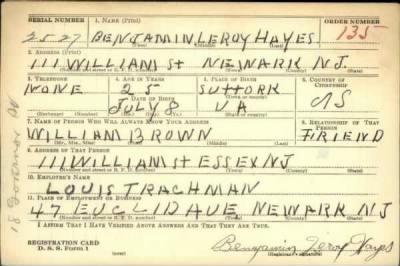 SERIAL NUMBER 1. NAME (Print) ORDER NUMBER
2527 BENJAMIN LEROY HAYES 135
(First) (Middle) (Last)
2. ADDRESS (Print)
111 WILLIAM St NEWARK N.J.
(Number and street or R. F. D. number) (Town) (County) (State)
3. TELEPHONE 4. AGE IN YEARS 5. PLACE OF BIRTH 6. COUNTRY OF CITIZENSHIP
NONE 25 SUFFORK US
DATE OF BIRTH (Town or county)
JULY 8 VA
(Exchange) (Number) (Mo.) (Day) (Yr.) (State or country)
7. NAME OF PERSON WHO WILL ALWAYS KNOW YOUR ADDRESS 8. RELATIONSHIP OF THAT PERSON
WILLIAM BROWN FRIEND
(Mr., Mrs., Miss) (First) (Middle) (Last)
9. ADDRESS OF THAT PERSON
111 WILLIAM St ESSEX NJ
(Number and street or R. F. D. number) (Town) (County) (State)
10. EMPLOYER'S NAME
LOUIS TRACHMAN
11. PLACE OF EMPLOYMENT OR BUSINESS
47 EUCLID AVE NEWARK NJ
(Number and street or R. F. D. number) (Town) (County) (State)
I AFFIRM THAT I HAVE VERIFIED ABOVE ANSWERS AND THAT THEY ARE TRUE.
REGISTRATION CARD
D. S. S. Form 1
Benjamin Leroy Hayes
(Registrant's signature)